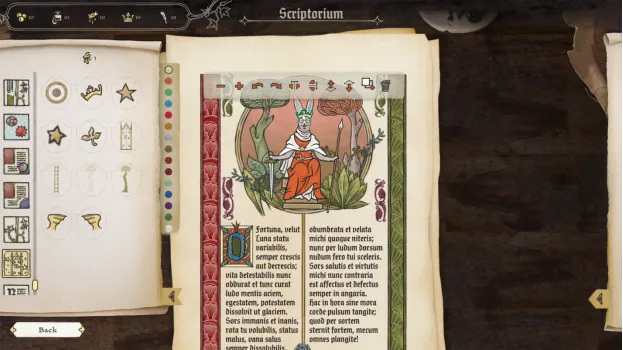 Scriptorium
Fortuna, velut
Luna statu
variabilis,
semper crescis
aut decrescis;
vita detestabilis nunc
obdurat et tunc curat
ludo mentis aciem,
egestatem, potestatem
dissolvit ut glaciem.
Sors immanis et inanis,
rota tu volubilis, status
malus, vana salus
semper dissolubilis,
obumbrata et velata
michi quoque niteris;
nunc per ludum dorsum
nudum fero tui sceleris.
Sors salutis et virtutis
michi nunc contraria
est affectus et defectus
semper in angaria.
Hac in hora sine mora
corde pulsum tangite;
quod per sortem
sternit fortem, mecum
omnes plangite!
Back